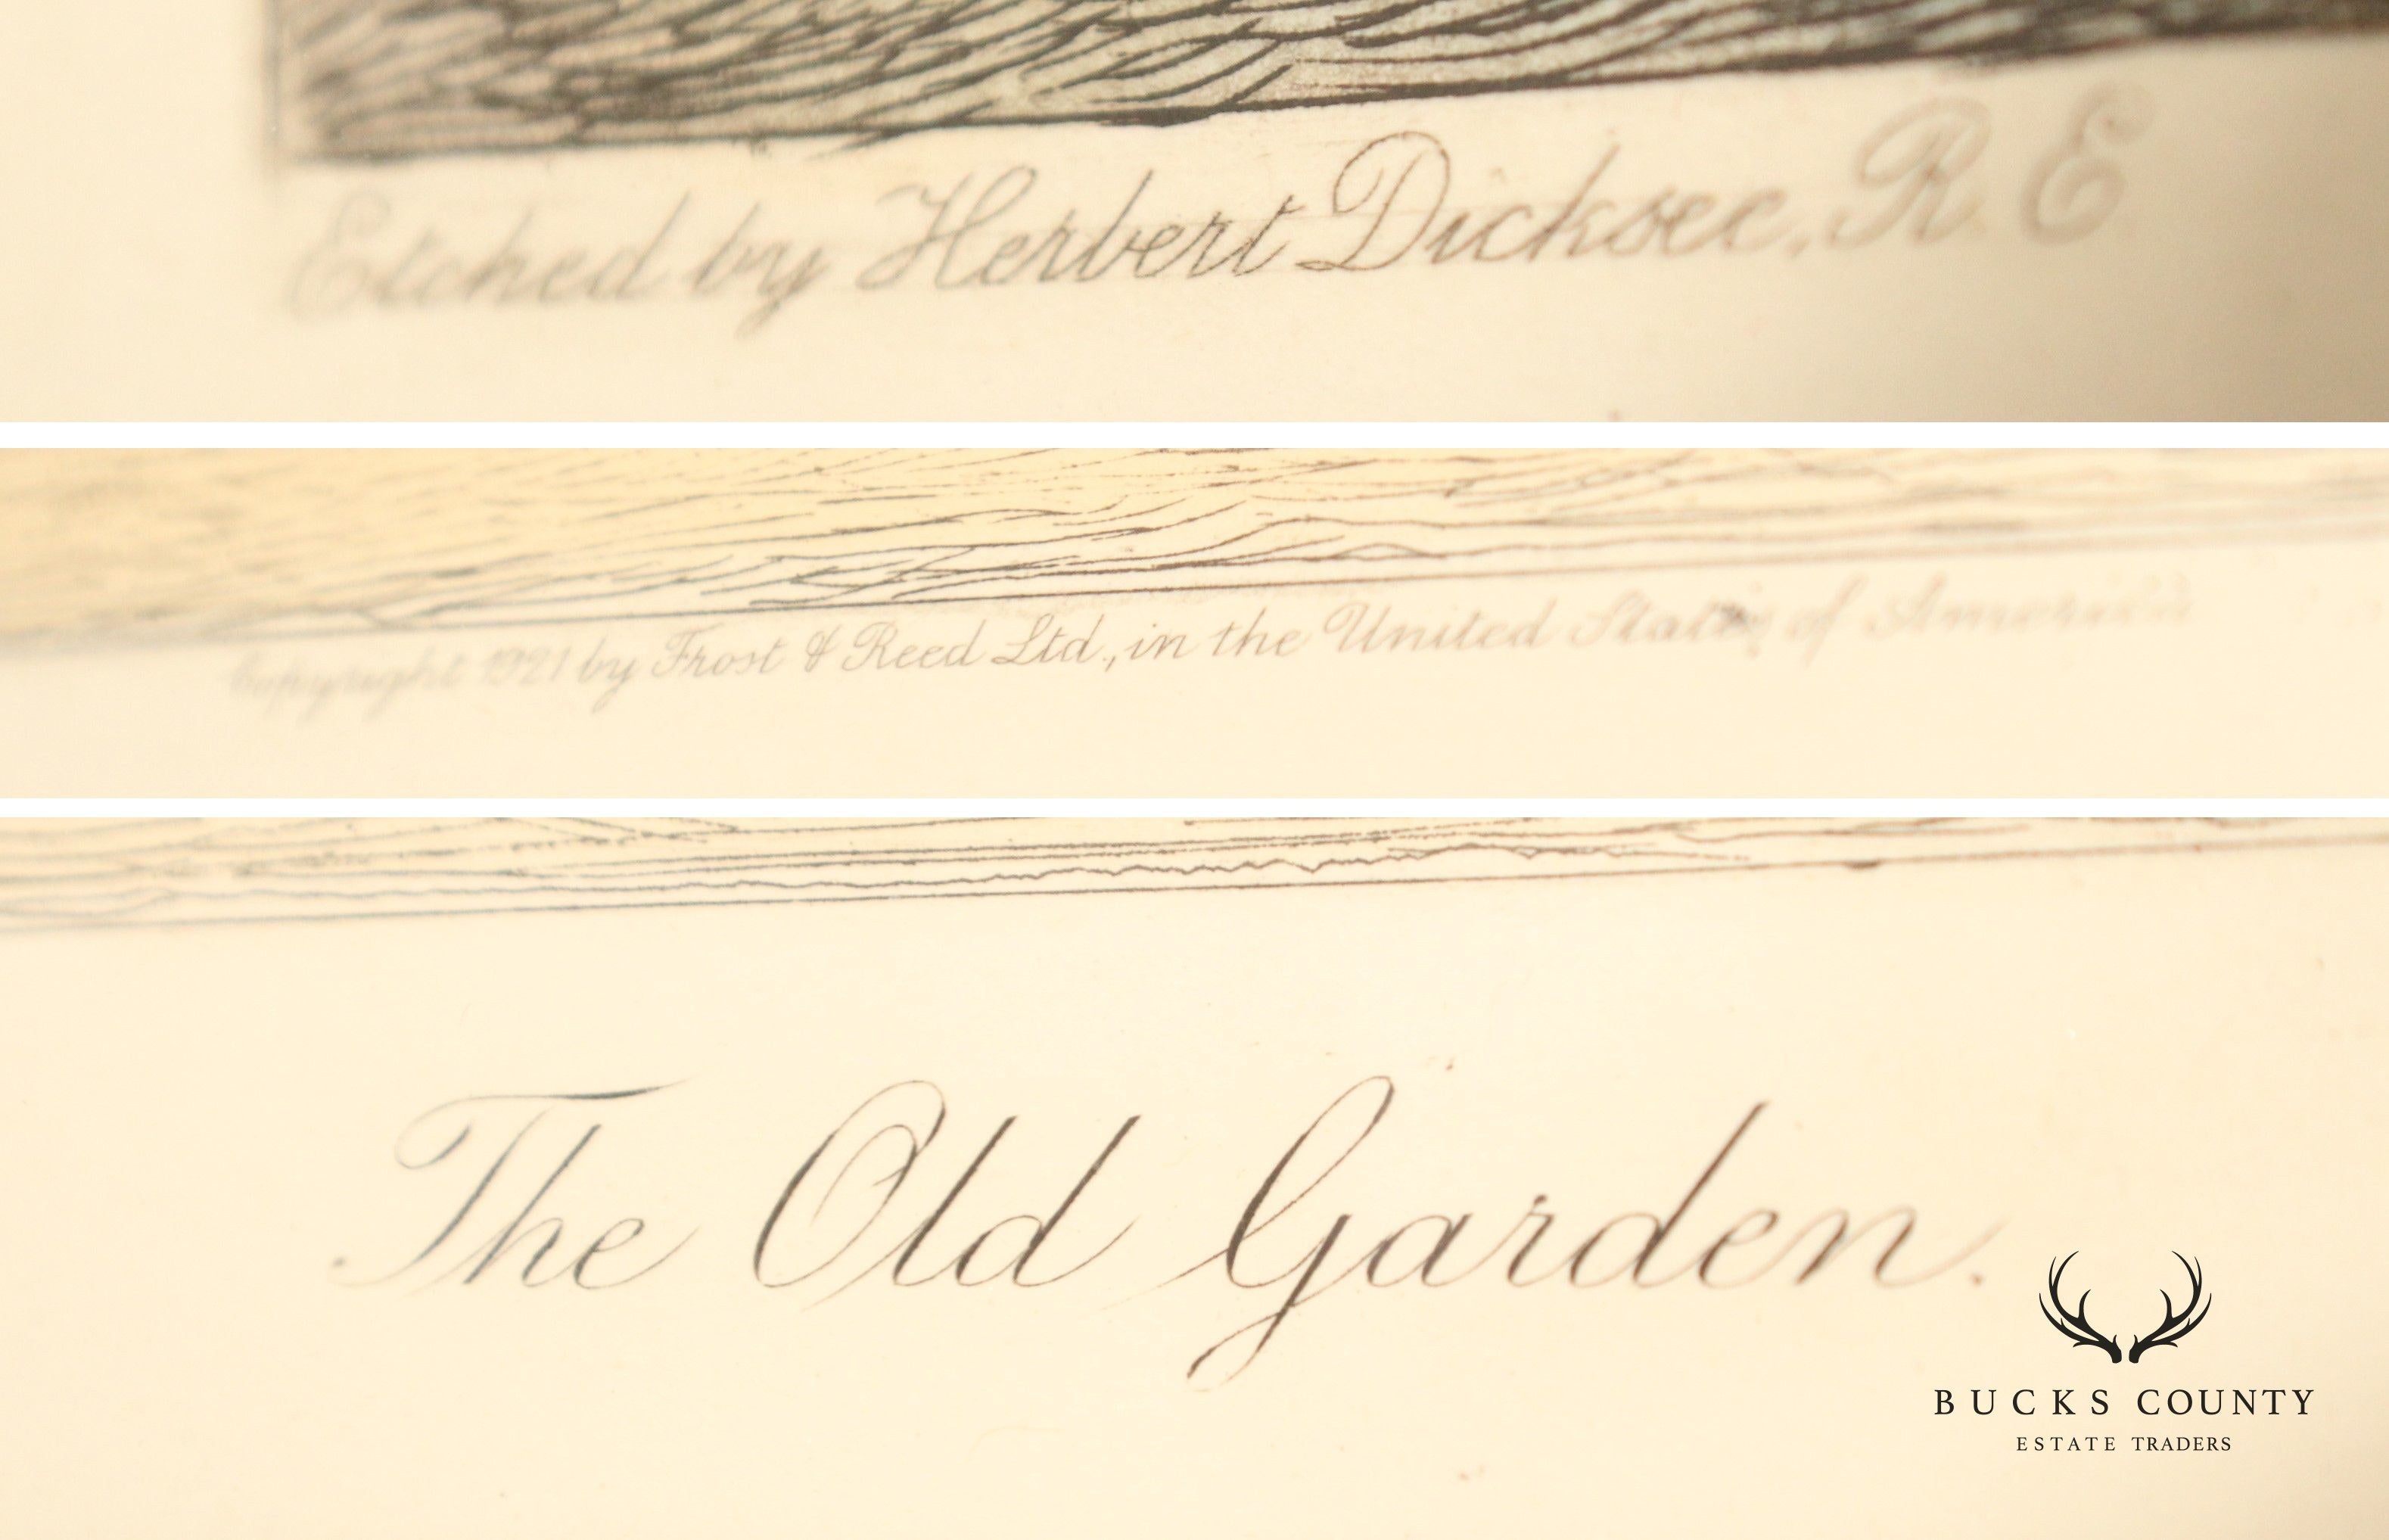 Etched by Herbert Dicksee, R. E
Copyright 1921 by Frost & Reed Ltd., in the United States of America
The Old Garden.
BUCKS COUNTY
ESTATE TRADERS